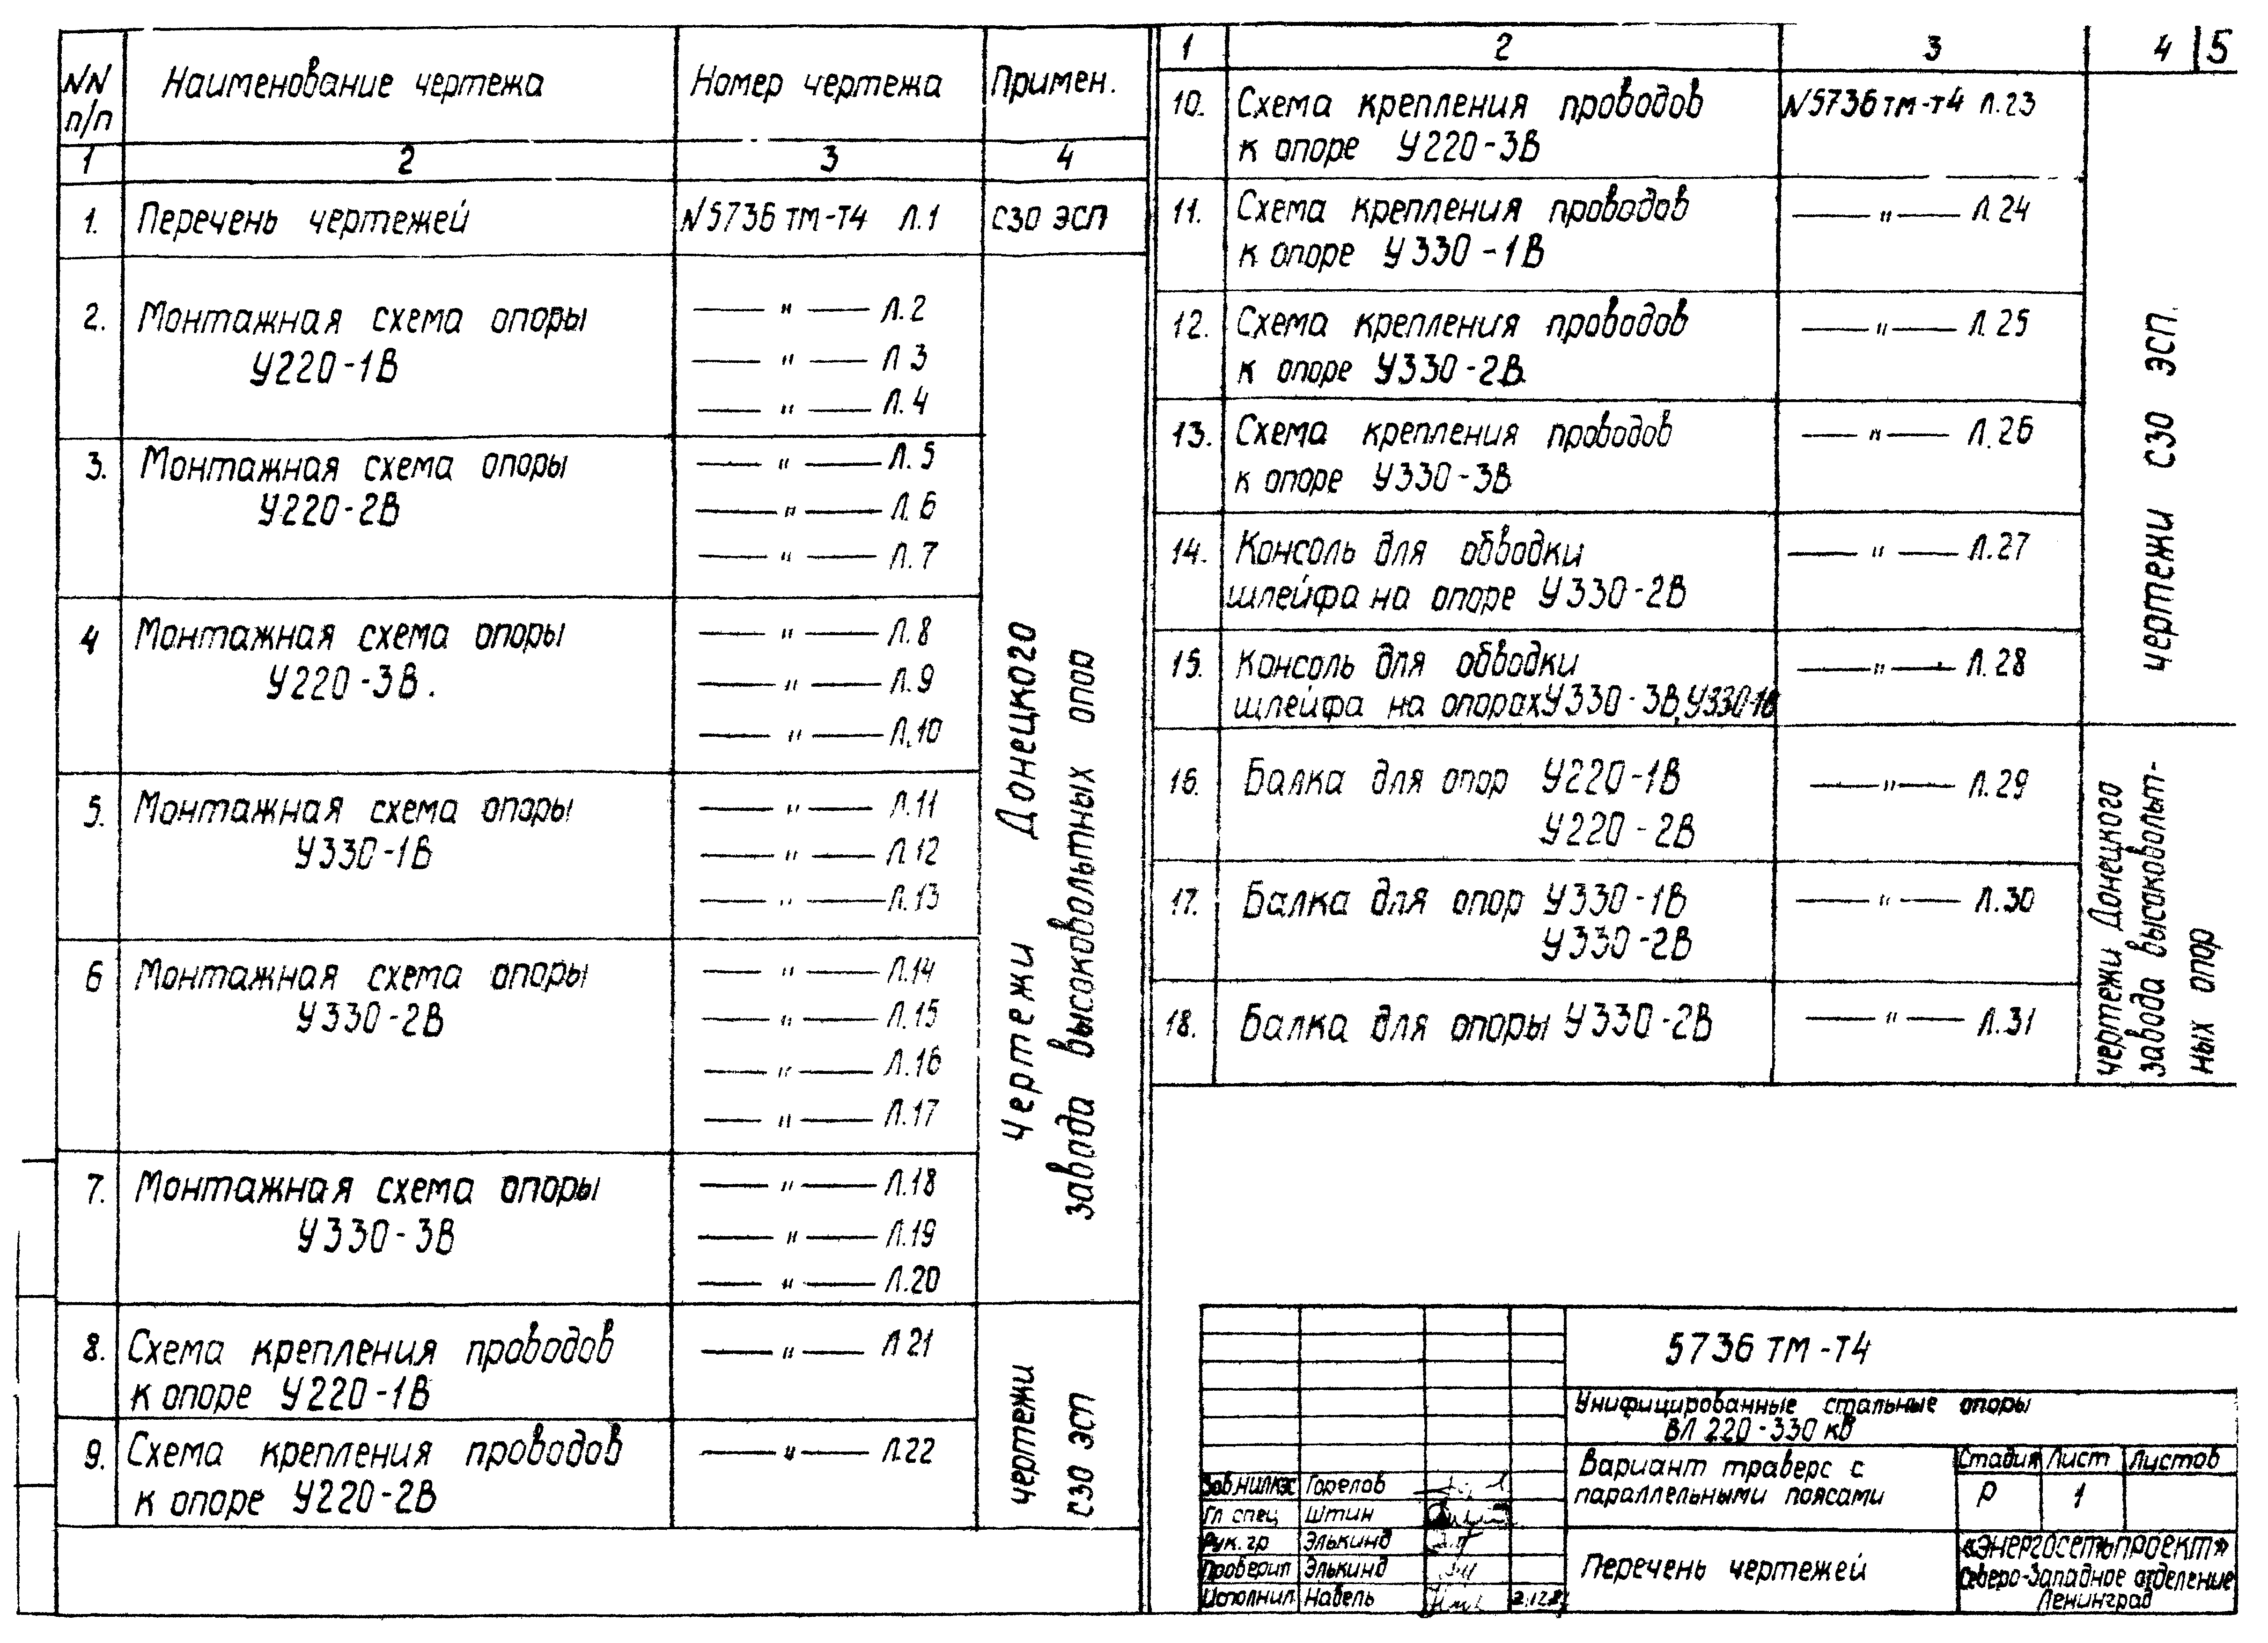 NN п/п Наименование чертежа Номер чертежа Примен.
1 2 3 4
1. Перечень чертежей N5736тм-т4 Л.1 СЗО ЭСП
2. Монтажная схема опоры —〃— Л.2
У220-1В —〃— Л3
—〃— Л.4
3. Монтажная схема опоры —〃— Л.5
У220-2В —〃— Л.6
—〃— Л.7
4 Монтажная схема опоры —〃— Л.8
У220-3В. —〃— Л.9
—〃— Л.10
5. Монтажная схема опоры —〃— Л.11
У330-1В —〃— Л.12
—〃— Л.13
6 Монтажная схема опоры —〃— Л.14
У330-2В —〃— Л.15
—〃— Л.16
—〃— Л.17
7. Монтажная схема опоры —〃— Л.18
У330-3В —〃— Л.19
—〃— Л.20
Чертежи Донецкого
завода высоковольтных опор
8. Схема крепления проводов —〃— Л21
к опоре У220-1В
9. Схема крепления проводов —〃— Л.22
к опоре У220-2В
чертежи
СЗО ЭСП
1 2 3 4 5
10. Схема крепления проводов N5736тм-т4 Л.23
к опоре У220-3В
11. Схема крепления проводов —〃— Л.24
к опоре У330-1В
12. Схема крепления проводов —〃— Л.25
к опоре У330-2В
13. Схема крепления проводов —〃— Л.26
к опоре У330-3В
14. Консоль для обводки —〃— Л.27
шлейфа на опоре У330-2В
15. Консоль для обводки —〃— Л.28
шлейфа на опорах У330-3В, У330-1В
чертежи СЗО ЭСП.
16. Балка для опор У220-1В —〃— Л.29
У220-2В
17. Балка для опор У330-1В —〃— Л.30
У330-2В
18. Балка для опоры У330-2В —〃— Л.31
чертежи Донецкого
завода высоковольт-
ных опор
5736тм-т4
Унифицированные стальные опоры
ВЛ 220-330 кв
Вариант траверс с
параллельными поясами
Стадия Лист Листов
Р 1
Зав.НИЛКЭС Горелов
Гл спец Штин
Рук.гр Элькинд
Проверил Элькинд
Исполнил Навель
Перечень чертежей
«Энергосетьпроект»
Северо-Западное отделение
Ленинград